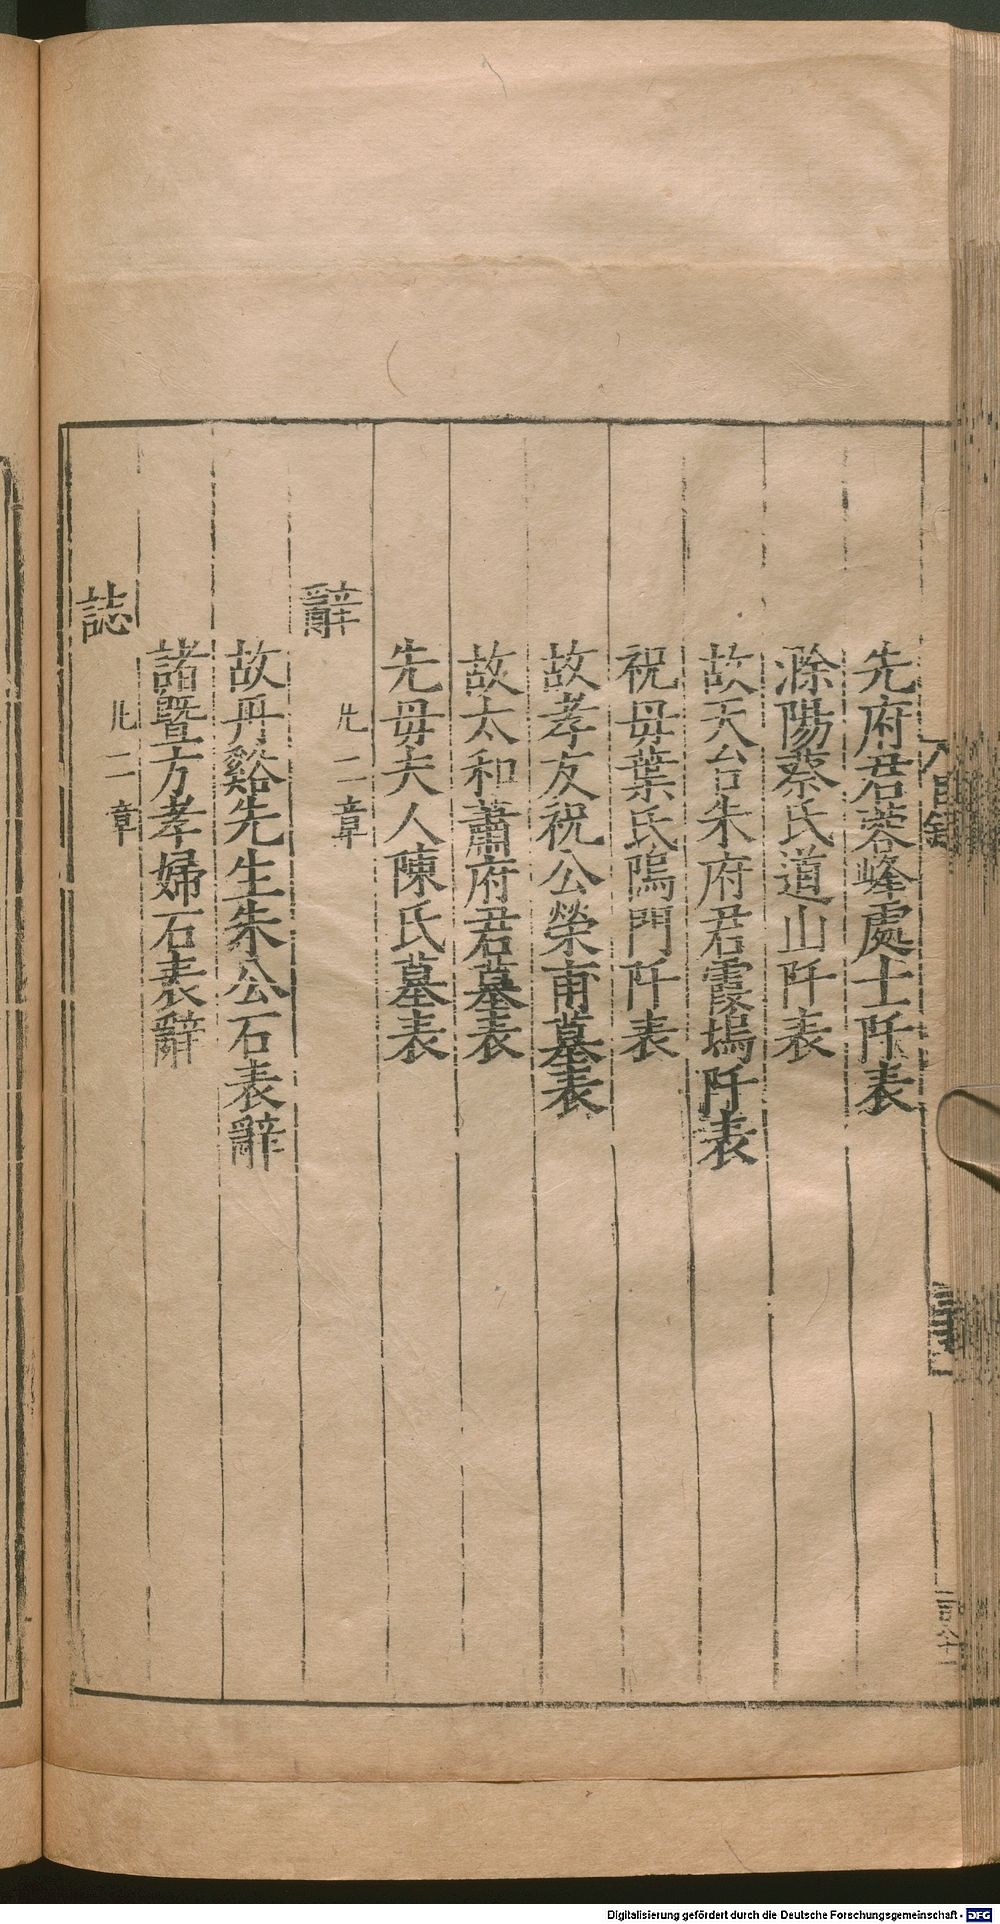 先府君蓉峰處士阡表
滁陽蔡氏道山阡表
故天台朱府君霞塢阡表
祝母葉氏隝門阡表
故孝友祝公榮甫墓表
故太和蕭府君墓表
先母夫人陳氏墓表
辭 凡二章
故丹谿先生朱公石表辭
諸暨方孝婦石表辭
誌 凡二章
Digitalisierung gefördert durch die Deutsche Forschungsgemeinschaft - DFG